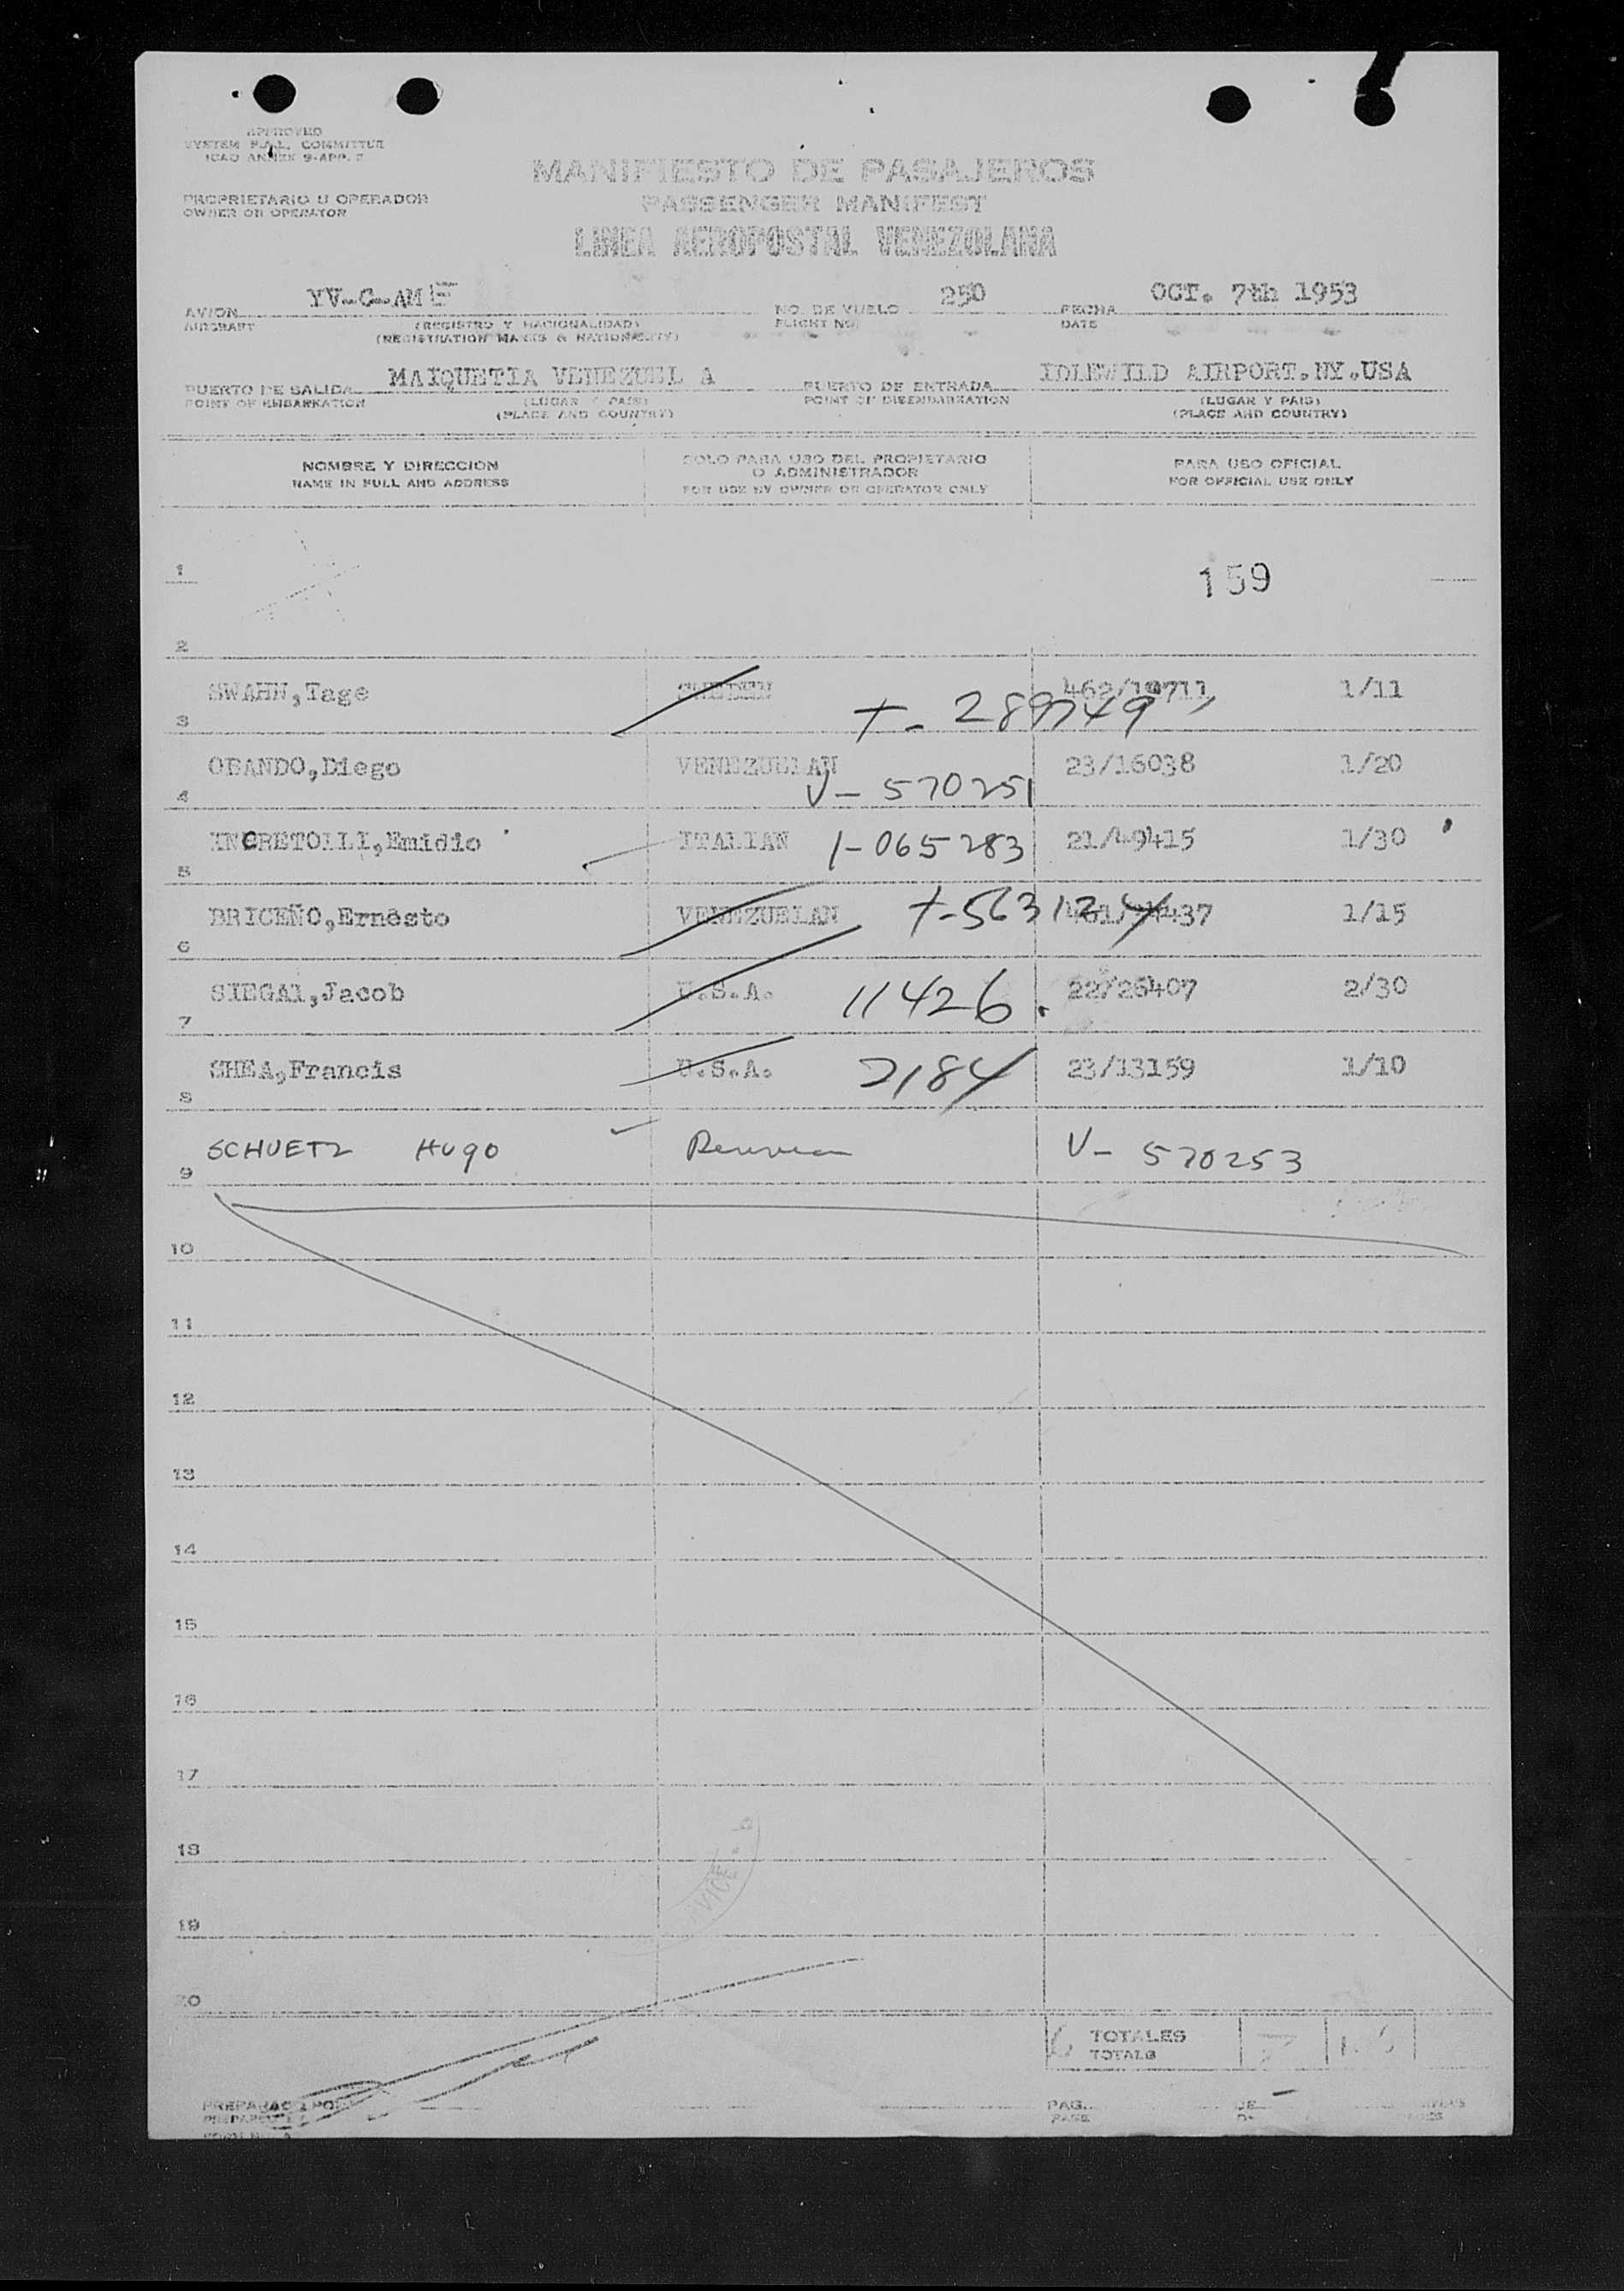 APPROVED
SYSTEM F.A.L. COMMITTEE
ICAO ANNEX 9-APP. 2
MANIFIESTO DE PASAJEROS
PROPRIETARIO U OPERADOR
OWNER OR OPERATOR
PASSENGER MANIFEST
LINEA AEROPOSTAL VENEZOLANA
AVION YV-C-AME NO. DE VUELO 250 FECHA OCT. 7th 1953
AIRCRAFT (REGISTRO Y NACIONALIDAD) FLIGHT NO. DATE
(REGISTRATION MARKS & NATIONALITY)
PUERTO DE SALIDA MAIQUETIA VENEZUEL A PUERTO DE ENTRADA IDLEWILD AIRPORT.NY.USA
POINT OF EMBARKATION (LUGAR Y PAIS) POINT OF DISEMBARKATION (LUGAR Y PAIS)
(PLACE AND COUNTRY) (PLACE AND COUNTRY)
NOMBRE Y DIRECCION SOLO PARA USO DEL PROPIETARIO PARA USO OFICIAL
O ADMINISTRADOR
NAME IN FULL AND ADDRESS FOR USE BY OWNER OR OPERATOR ONLY FOR OFFICIAL USE ONLY
1 159
2
SWAHN,Tage 462/19711 1/11
3 T- 289749
OBANDO,Diego VENEZUELAN 23/16038 1/20
4 V- 570251
INCRETOLLI,Emidio ITALIAN I-065283 21/49415 1/30
5
BRICEÑO,Ernesto VENEZUELAN T-563124 1/15
6
SIEGAL,Jacob U.S.A. 11426. 22/26407 2/30
7
SHEA,Francis U.S.A. 2184 23/13159 1/10
8
SCHUETZ HUGO Peruvian V- 570253
9
10
11
12
13
14
15
16
17
18
19
20
TOTALES 7
TOTALS
PREPARADO POR
PAG. DE
PAGE